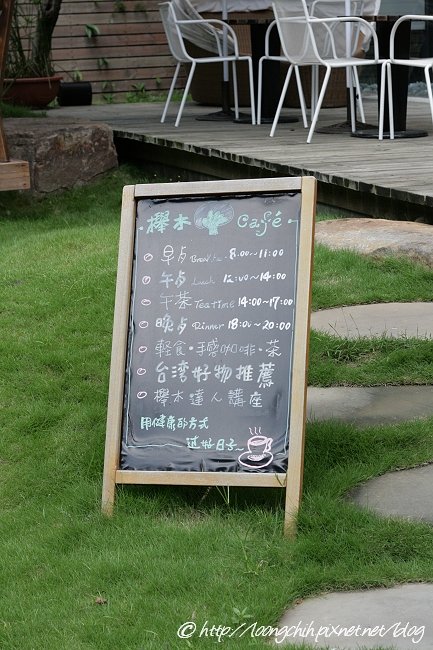 櫸木 Café
早点 Breakfast 8:00~11:00
午点 Lunch 12:00~14:00
午茶 Teatime 14:00~17:00
晚点 Dinner 18:00~20:00
輕食·手感咖啡·茶
台湾好物推薦
櫸木達人講座
用健康的方式
過好日子~
© http://loongchih.pixnet.net/blog